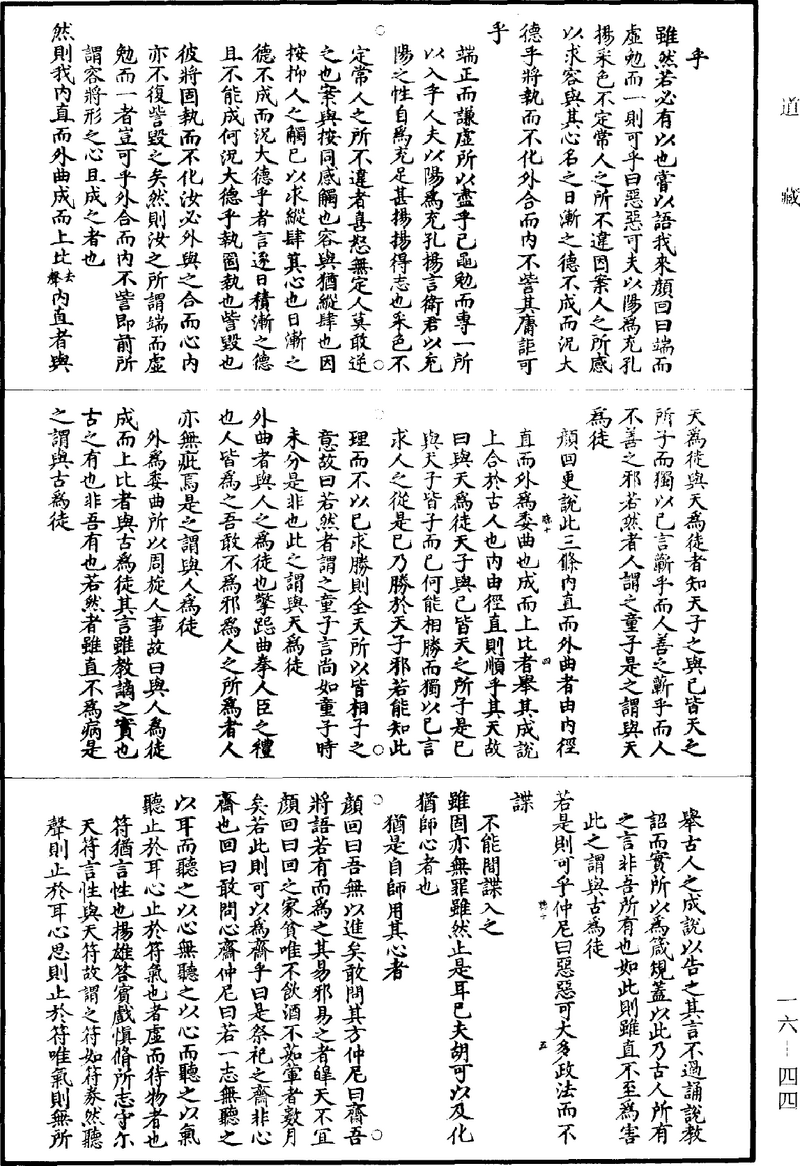 道藏
乎
雖然若必有以也嘗以語我來顏回曰端而
虛勉而一則可乎曰惡惡可夫以陽為充孔
揚采色不定常人之所不違因案人之所感
以求容與其心名之日漸之德不成而況大
德乎將執而不化外合而內不訾其庸詎可
乎
端正而謙虛所以盡乎己黽勉而專一所
以入乎人夫以陽為充孔揚言衛君以充
陽之性自為充足甚揚揚得志也采色不
定常人之所不違者喜怒無定人莫敢逆
之也案與按同感觸也容與猶縱肆也因
按抑人之觸己以求縱肆其心也日漸之
德不成而況大德乎者言逐日積漸之德
且不能成何況大德乎執固執也訾毀也
彼將固執而不化汝必外與之合而心內
亦不復訾毀之矣然則汝之所謂端而虛
勉而一者豈可乎外合而內不訾即前所
謂容將形之心且成之者也
然則我內直而外曲成而上比去聲內直者與
天為徒與天為徒者知天子之與己皆天之
所子而獨以己言蘄乎而人善之蘄乎而人
不善之邪若然者人謂之童子是之謂與天
為徒
顏回更說此三條內直而外曲者由內徑
直而外為委曲也成而上比者舉其成說
上合於古人也內由徑直則順乎其天故
曰與天為徒天子與己皆天之所子是己
與天子皆子而已何能相勝而獨以己言
求人之從是己乃勝於天子邪若能知此
理而不以己求勝則全天所以皆相子之
意故曰若然者謂之童子言尚如童子時
未分是非也此之謂與天為徒
外曲者與人之為徒也擎跽曲拳人臣之禮
也人皆為之吾敢不為邪為人之所為者人
亦無疵焉是之謂與人為徒
外為委曲所以周旋人事故曰與人為徒
成而上比者與古為徒其言雖教謫之實也
古之有也非吾有也若然者雖直不為病是
之謂與古為徒
舉古人之成說以告之其言不過誦說教
詔而實所以為箴規蓋以此乃古人所有
之言非吾所有也如此則雖直不至為害
此之謂與古為徒
若是則可乎仲尼曰惡惡可大多政法而不
諜
不能間諜入之
雖固亦無罪雖然止是耳已夫胡可以及化
猶師心者也
猶是自師用其心者
顏回曰吾無以進矣敢問其方仲尼曰齊吾
將語若有而為之其易邪易之者皞天不宜
顏回曰回之家貧唯不飲酒不茹葷者數月
矣若此則可以為齋乎曰是祭祀之齋非心
齋也回曰敢問心齋仲尼曰若一志無聽之
以耳而聽之以心無聽之以心而聽之以氣
聽止於耳心止於符氣也者虛而待物者也
符猶言性也揚雄答賓戲慎脩所志守尓
天符言性與天符故謂之符如符券然聽
聲則止於耳心思則止於符唯氣則無所
一六-四四